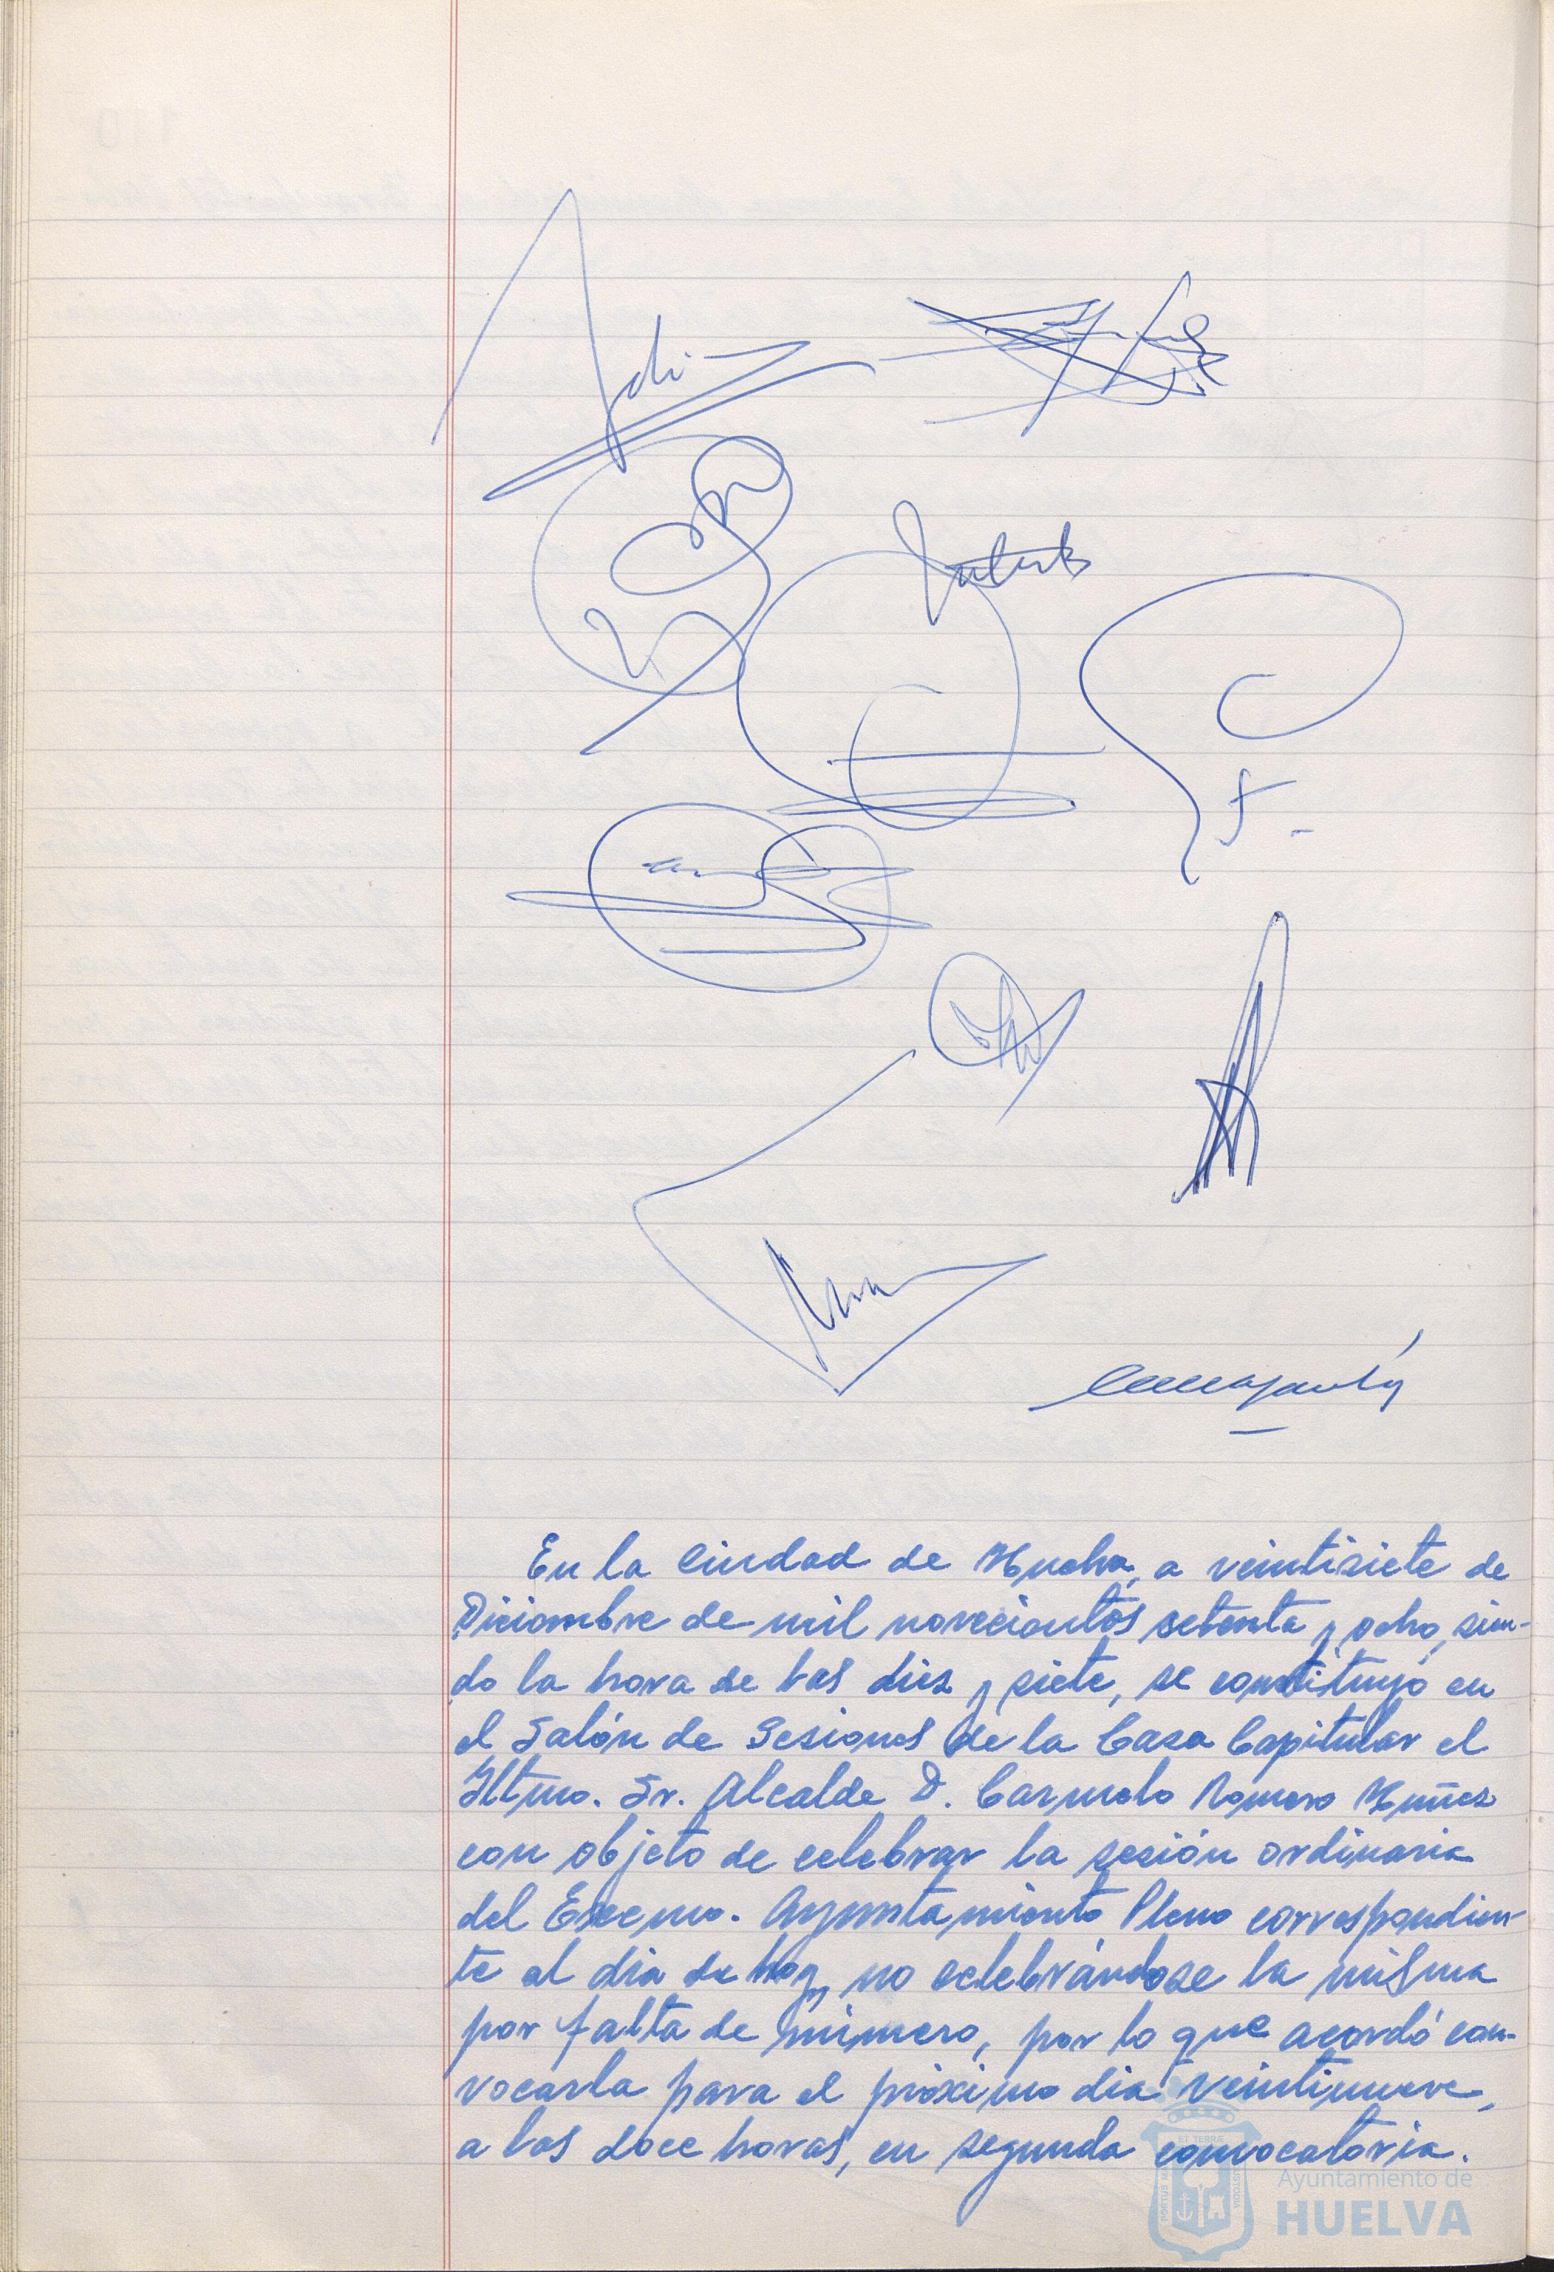 En la Ciudad de Huelva, a veintisiete de
Diciembre de mil novecientos setenta y ocho, sien-
do la hora de las diez y siete, se constituyó en
el Salón de Sesiones de la Casa Capitular el
Iltmo. Sr. Alcalde D. Carmelo Romero Núñez
con objeto de celebrar la sesión ordinaria
del Excmo. Ayuntamiento Pleno correspondien-
te al dia de hoy, no celebrándose la misma
por falta de número, por lo que acordó con-
vocarla para el próximo dia veintinueve,
a las doce horas, en segunda convocatoria.
Ayuntamiento de
HUELVA